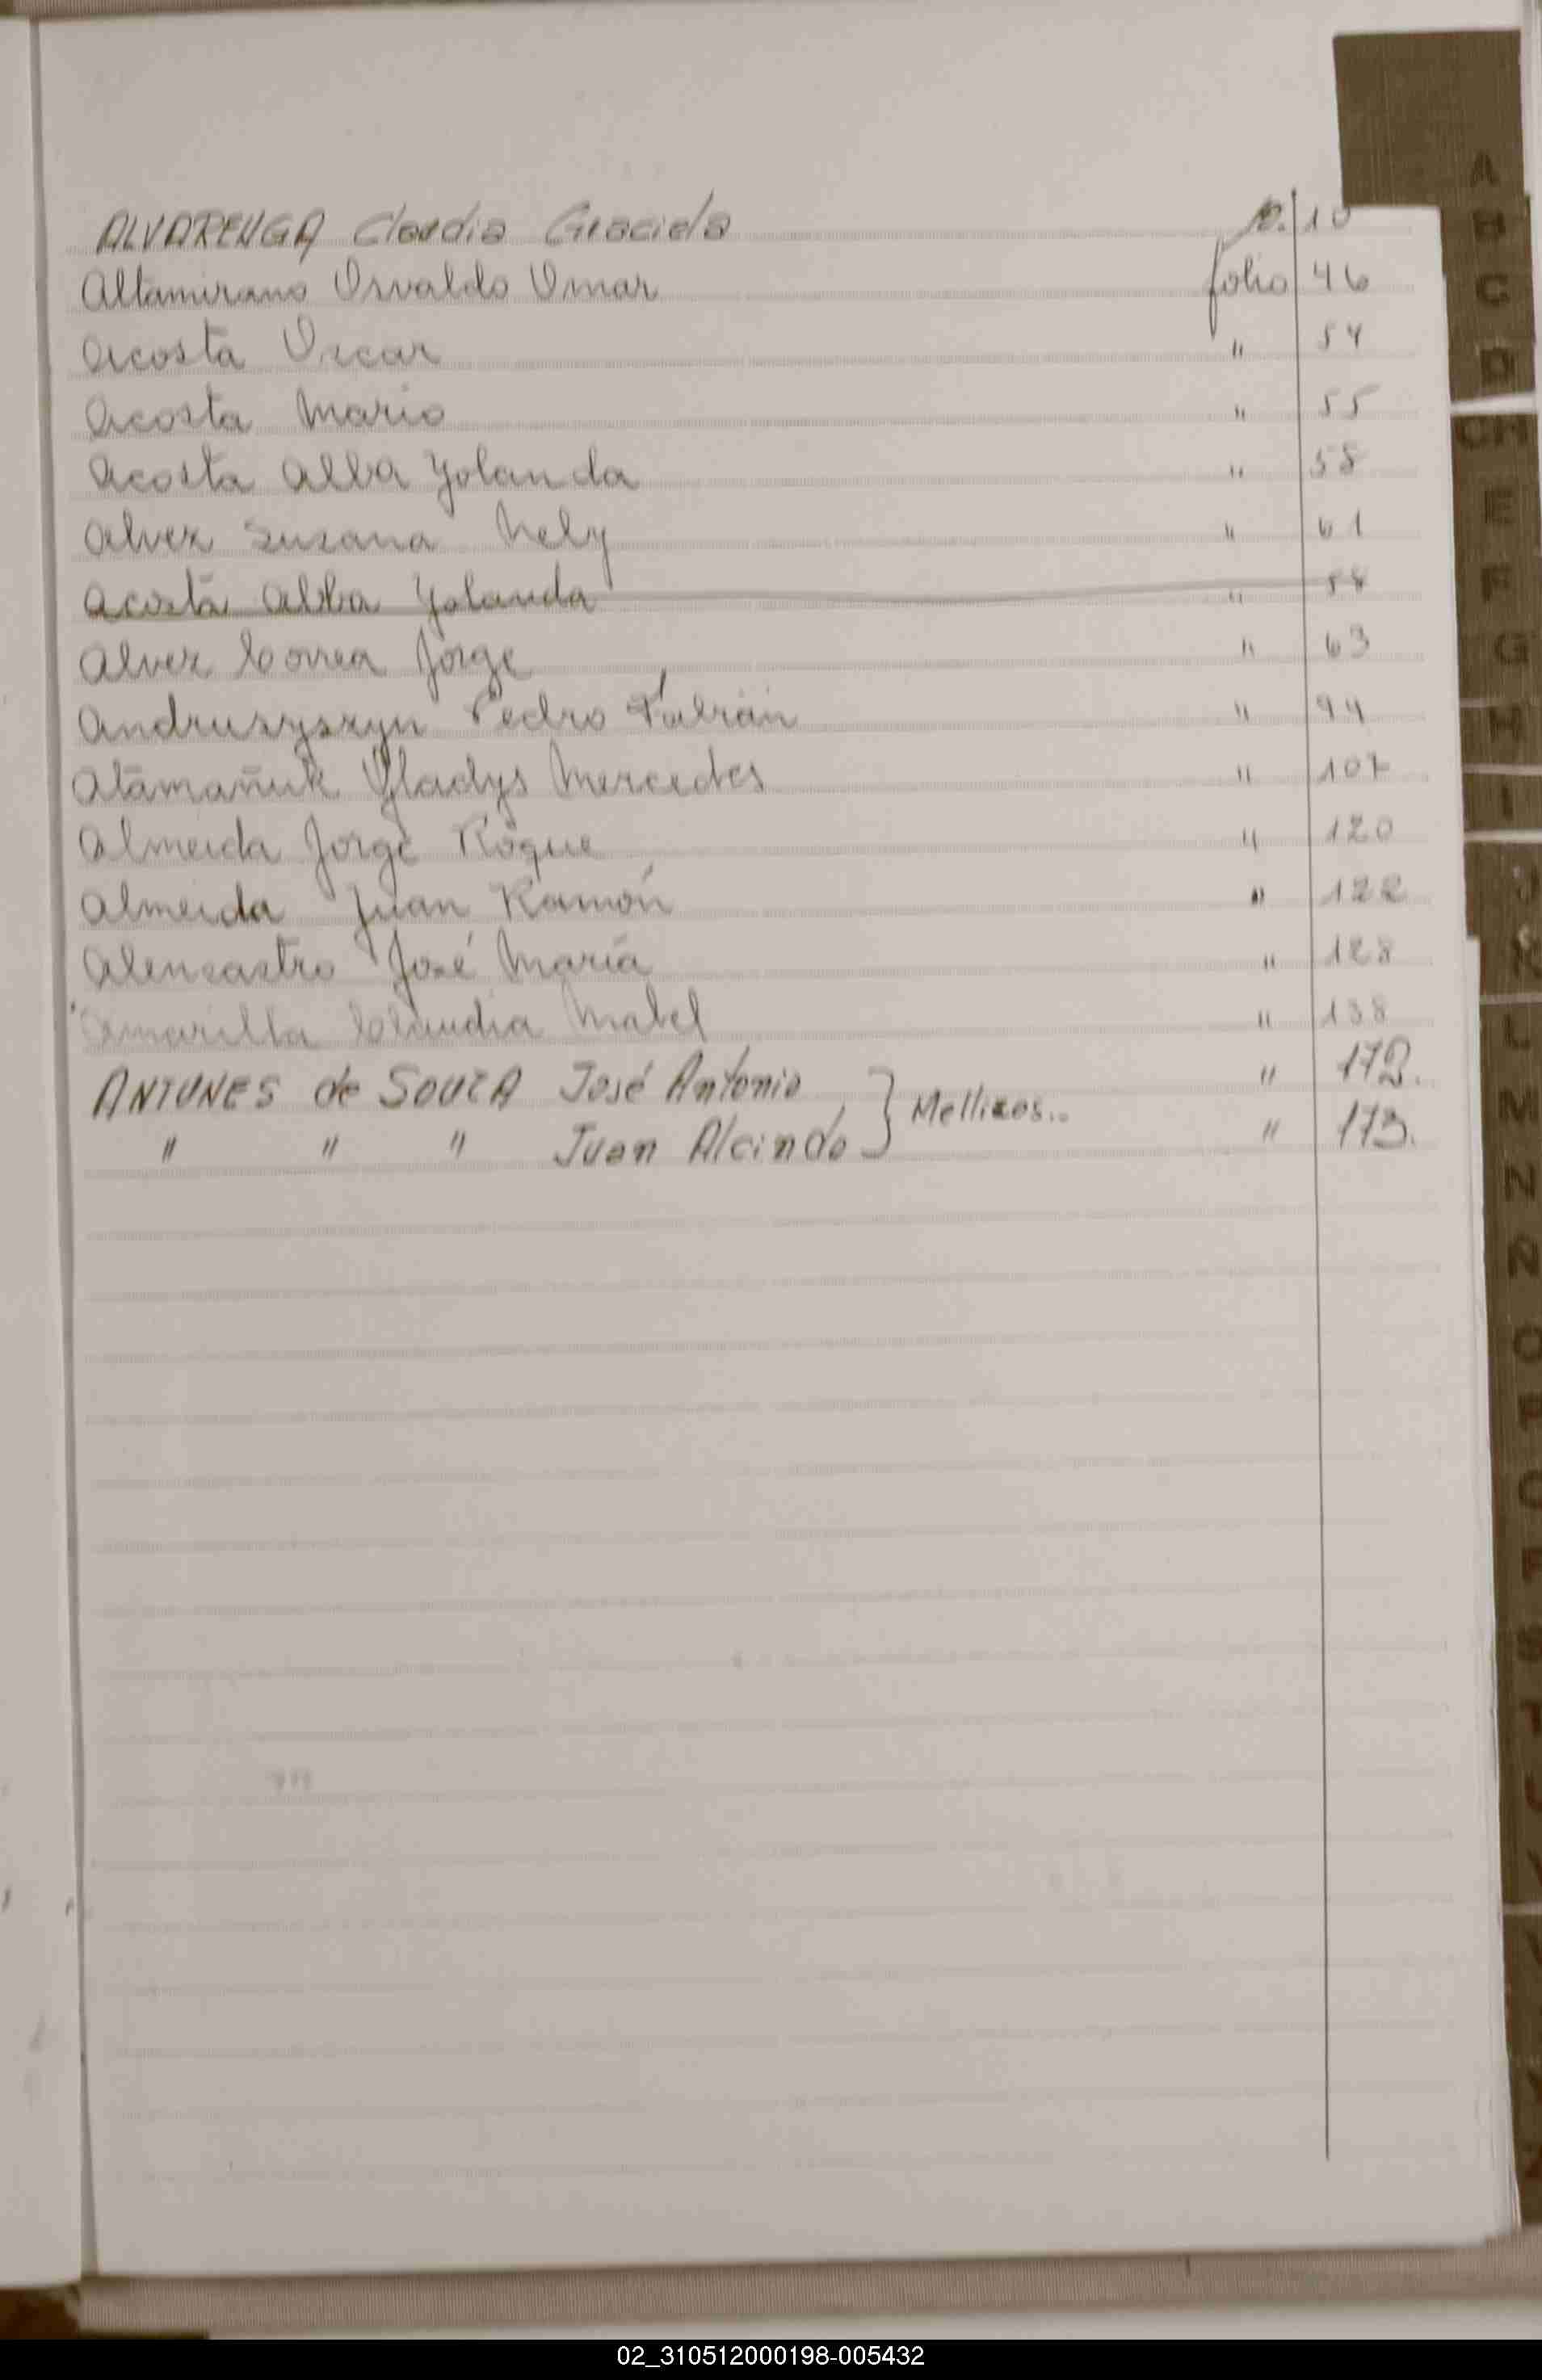 ALVARENGA Claudia Graciela p. 10
Altamirano Osvaldo Omar folio 46
Acosta Oscar " 54
Acosta Mario " 55
Acosta Alba Yolanda " 58
Alvez Susana Nely " 61
Acosta Alba Yolanda " 58
Alvez Correa Jorge " 63
Andrusyszyn Pedro Fabián " 94
Atamañuk Gladys Mercedes " 107
Almeida Jorge Roque " 120
Almeida Juan Ramón " 122
Alencastro José María " 128
Amarilla Claudia Mabel " 138
ANTUNES de SOUZA José Antonio } Mellizos.. " 172.
" " " Juan Alcindo } " 173.
A
B
C
D
CH
E
F
G
H
I
J
K
L
M
N
Ñ
O
P
Q
R
S
T
U
V
02_310512000198-005432